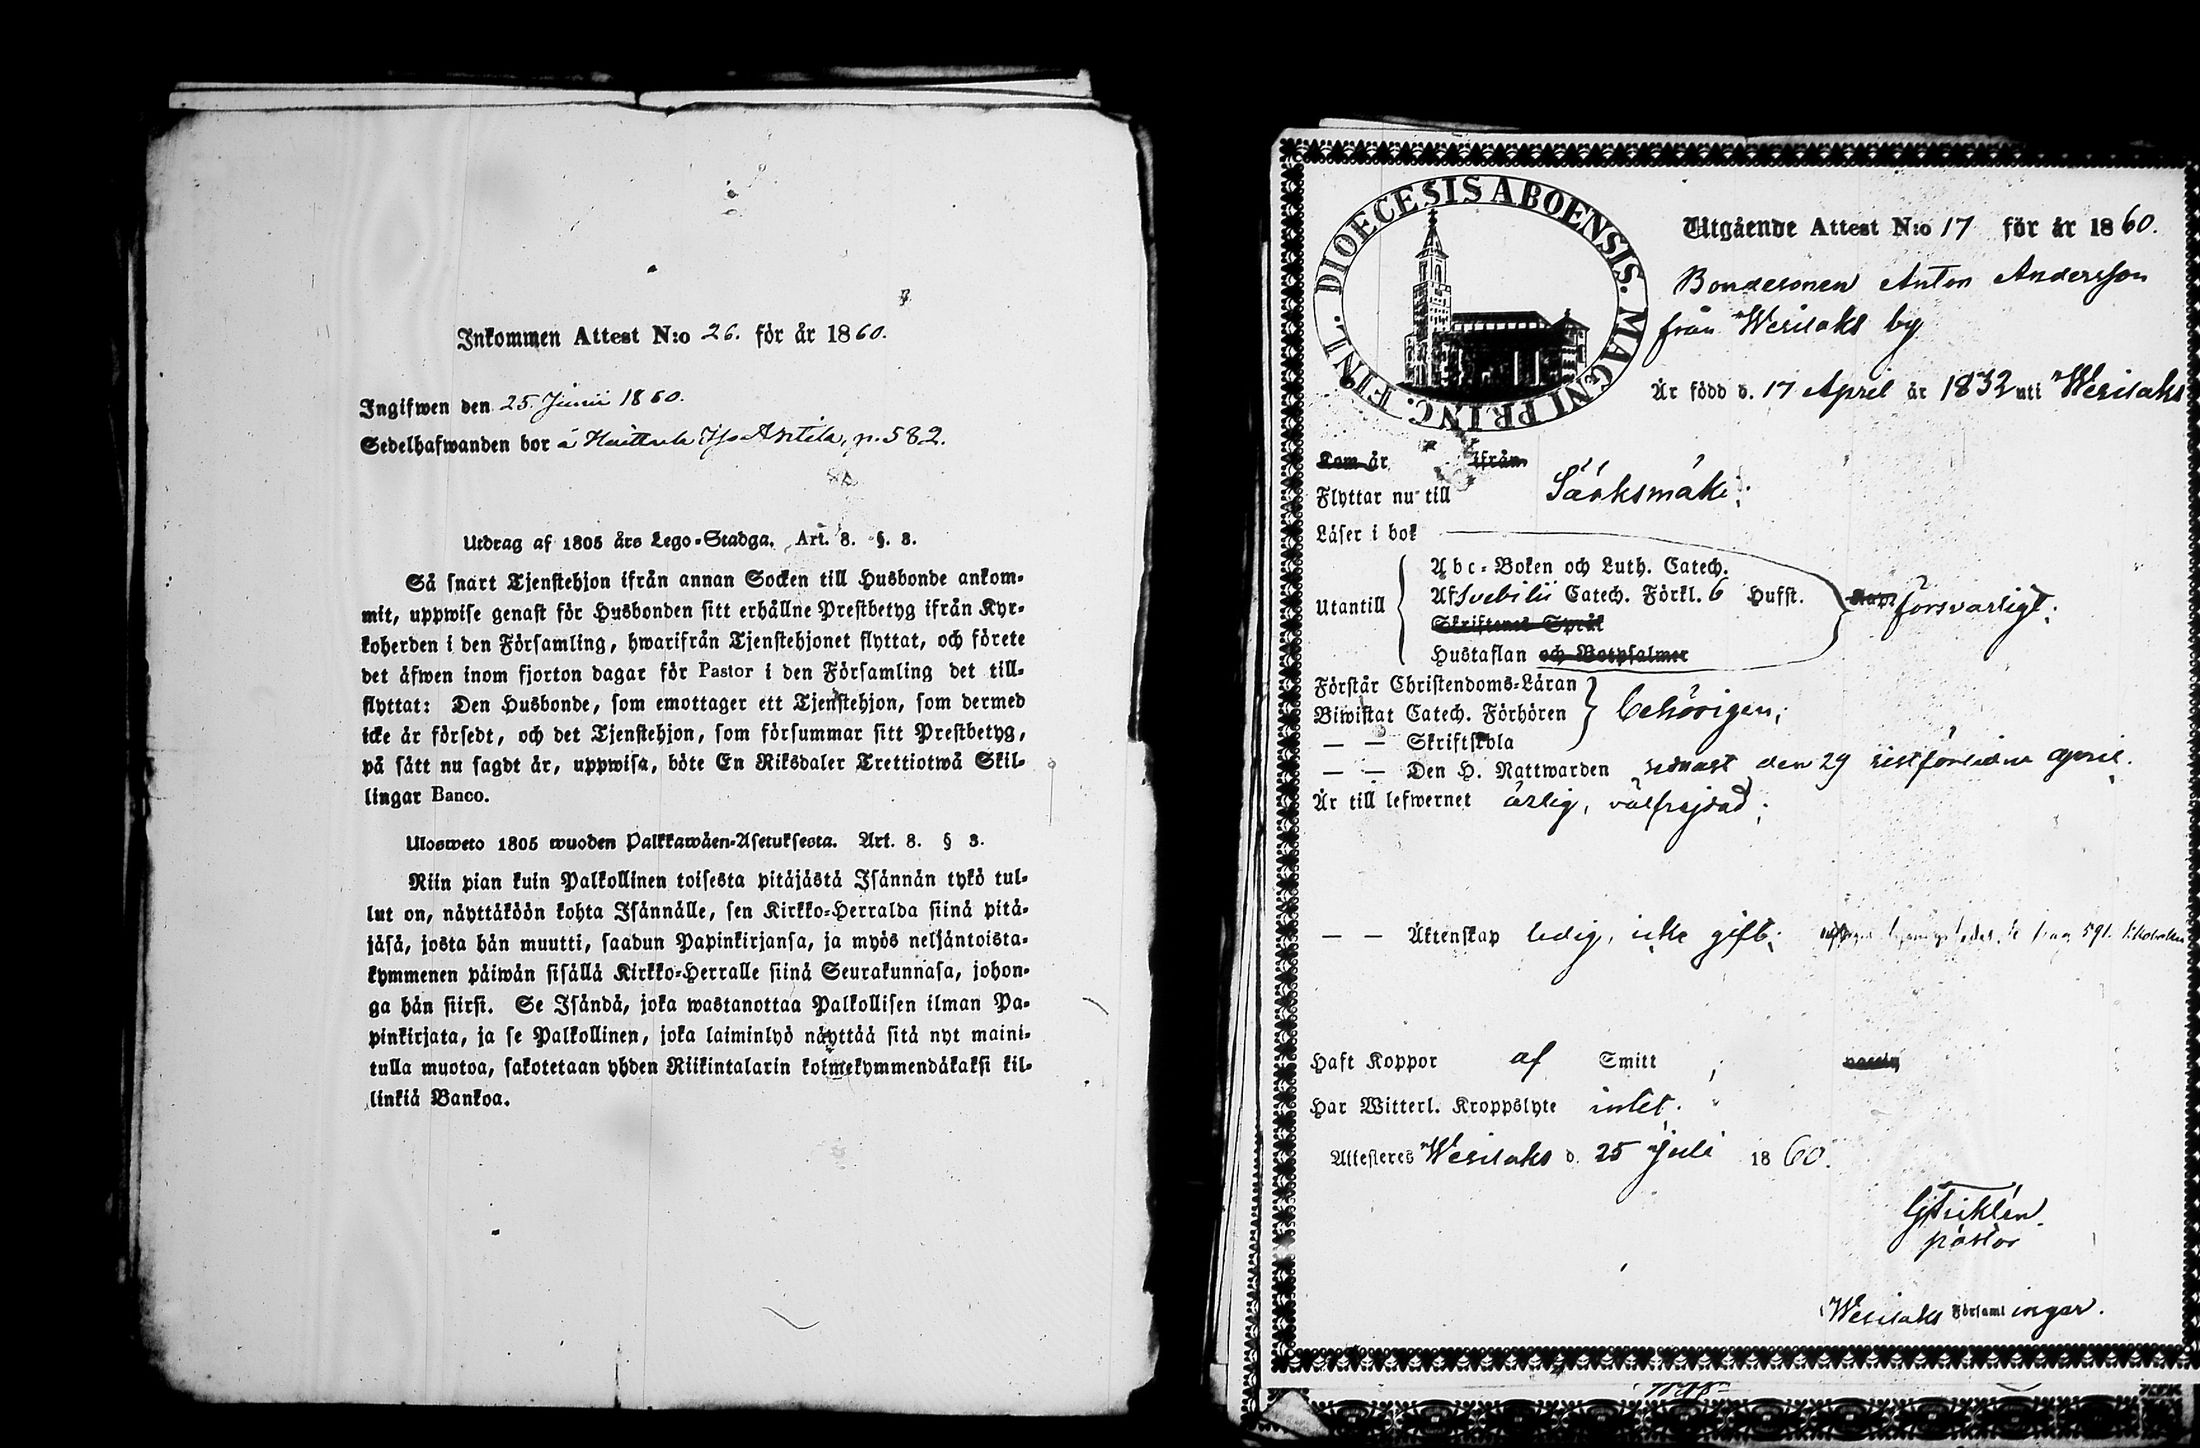 Inkommen Attest N:o 26. för år 1860.
Ingifwen den 25 Junii 1860.
Sedelhafwanden bor å Huittula Iso Antila, p. 582.
Utdrag af 1805 års Lego-Stadga. Art. 8. §. 3.
Så snart Tjenstehjon ifrån annan Socken till Husbonde ankom-
mit, uppwise genast för Husbonden sitt erhållne Prestbetyg ifrån Kyr-
koherden i den Församling, hwarifrån Tjenstehjonet flyttat, och förete
det äfwen inom fjorton dagar för Pastor i den Församling det till-
flyttat: Den Husbonde, som emottager ett Tjenstehjon, som dermed
icke är försedt, och det Tjenstehjon, som försummar sitt Prestbetyg,
på sätt nu sagdt är, uppwisa, böte En Riksdaler Trettiotwå Skil-
lingar Banco.
Ulosweto 1805 wuoden Palkkawäen-Asetuksesta. Art. 8. § 3.
Niin pian kuin Palkollinen toisesta pitäjästä Isännän tykö tul-
lut on, näyttäköön kohta Isännälle, sen Kirkko-Herralda siinä pitä-
jäsä, josta hän muutti, saadun Papinkirjansa, ja myös neljäntoista-
kymmenen päiwän sisällä Kirkko-Herralle siinä Seurakunnasa, johon-
ga hän siirsi. Se Isändä, joka wastanottaa Palkollisen ilman Pa-
pinkirjata, ja se Palkollinen, joka laiminlyö näyttää sitä nyt maini-
tulla muotoa, sakotetaan yhden Riikintalarin kolmekymmendäkaksi kil-
linkiä Bankoa.
DIOECESIS ABOENSIS. MAGNI PRINC. FINL.
Utgående Attest N:o 17 för år 1860.
Bondesonen Anton Andersson
från Wesilaks by
Är född d. 17 April år 1832 uti Wesilaks
Kom år ifrån
Flyttar nu till Sääksmäki;
Läser i bok
Utantill
Abc-Boken och Luth. Catech.
Af Svebilii Catech. Förkl. 6 Hufst.
Skriftenes Språk
Hustaflan och Botpsalmer
försvarligt;
Förstår Christendoms-Läran
Biwistat Catech. Förhören
behörigen;
— — Skriftskola
— — Den H. Nattwarden senast den 29 sistförlidne april.
Är till lefwernet ärlig, välfrejdad;
— — Äktenskap ledig, icke gift;
Haft Koppor af Smitt
Har Witterl. Kroppslyte intet.
Attesteres Wesilaks d. 25 Juli 1860.
pastor
i Wesilaks Församlingar.